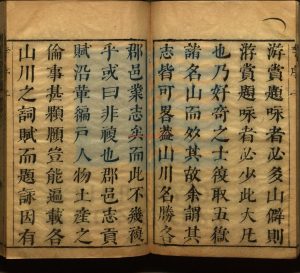 游賞題咏者必多山僻則
游賞題咏者必少此大凡
也乃好奇之士復取五嶽
諸名山而效其故余謂其
志皆可畧蓋山川名勝各
郡邑業志矣而此不幾複
乎或曰非複也郡邑志貢
賦沿革編戸人物土產之
倫事甚顆顧豈能遍載各
山川之詞賦而題詠因有